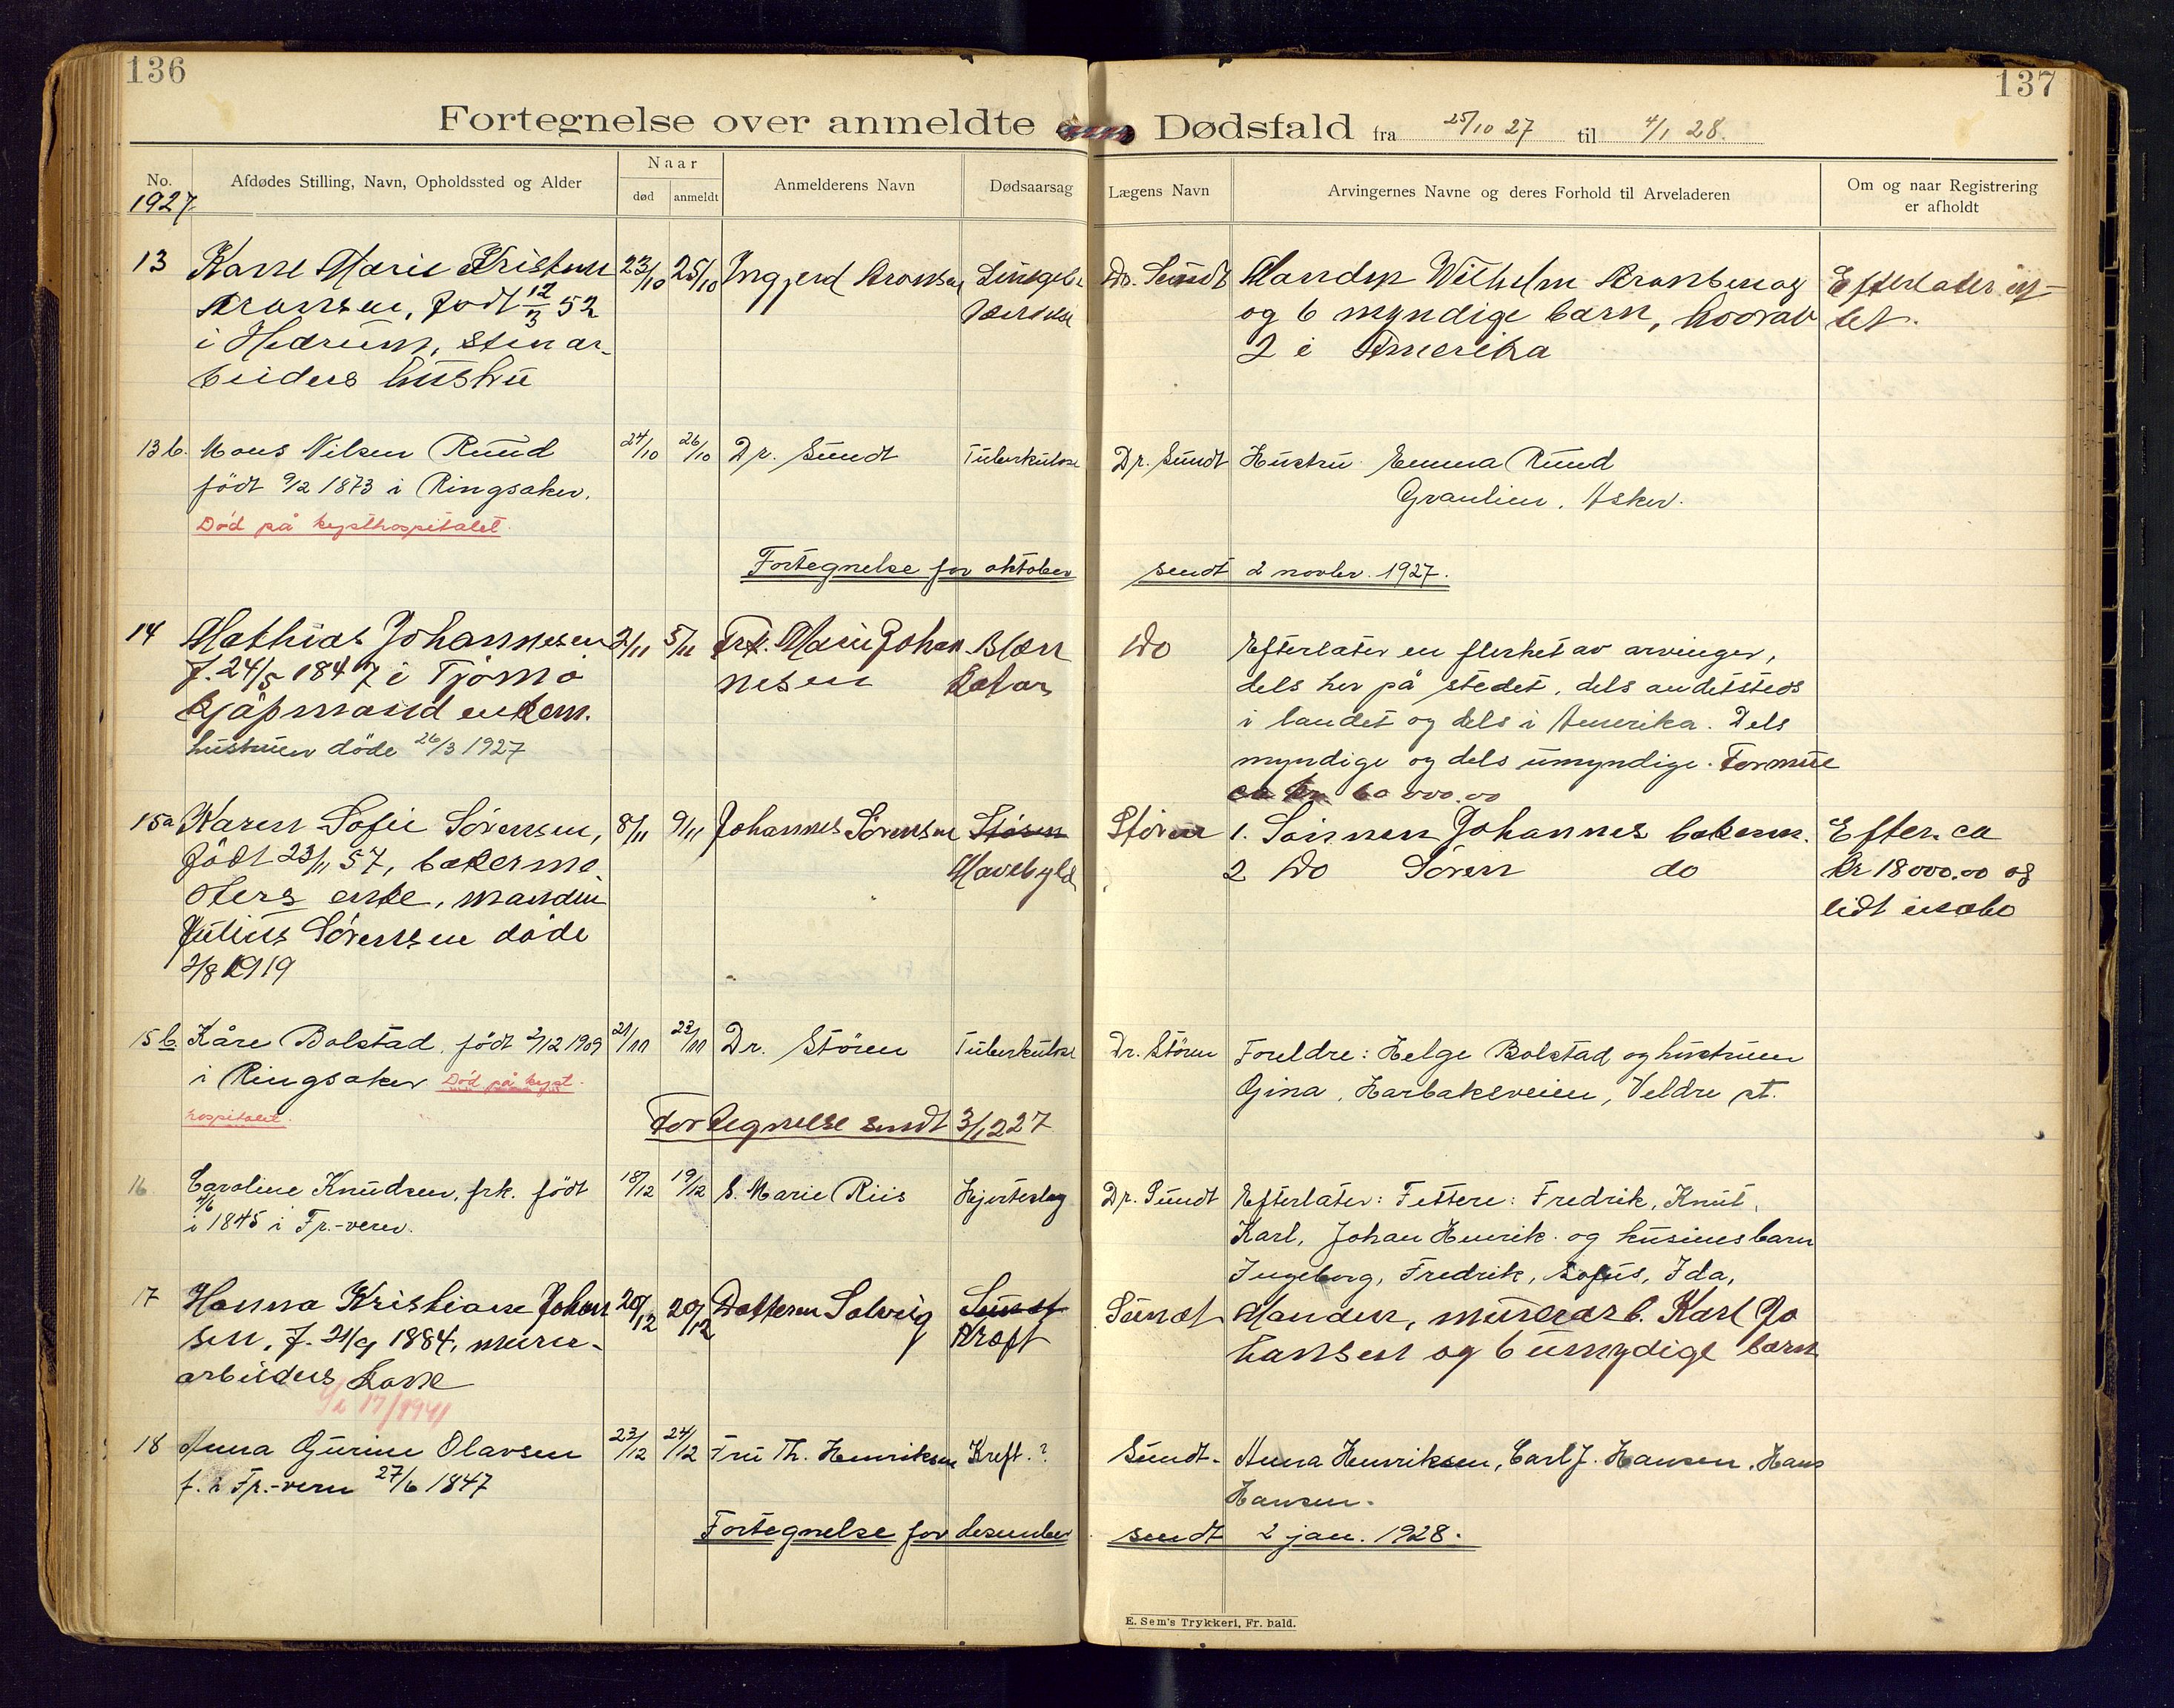 136
137
Fortegnelse over anmeldte Dødsfald fra 25/10 27 til 4/1 28.
No.
1927.
Afdødes Stilling, Navn, Opholdssted og Alder
Naar
død
anmeldt
Anmelderens Navn
Dødsaarsag
Lægens Navn
Arvingernes Navne og deres Forhold til Arveladeren
Om og naar Registrering
er afholdt
13 Marie 23/10 25/10 Dr. Sundt Manden Wilhelm
født 12/3 52
og 6 myndige barn, hvorav
i Hedrum, stenar-
2 i Amerika
beiders hustru
13 b. Mons Nilsen Ruud 24/10 26/10 Dr. Sundt Tuberkulose Dr. Sundt Hustru Emma Ruud
født 9/2 1873 i Ringsaker.
Granlien, Asker.
Død på kysthospitalet.
Fortegnelse for oktober sendt 2 novbr. 1927.
14 Mathias Johannesen 2/11 5/11 Frk. Marie Johan Blære Do Efterlater en flerhet av arvinger,
f. 24/5 1847 i Tjømø nesen katar dels her på stedet, dels andetsteds
kjøpmand enkem. i landet og dels i Amerika. Dels
hustruen døde 26/3 1927
myndige og dels umyndige. Formue
ca kr 60 000.00
15a Karen Sofie Sørensen, 8/11 9/11 Johannes Sørensen Støren Støren 1. Sønnen Johannes Efter. ca
født 23/11 57, bakerme- 2 Do Søren do kr 18000.00 og
sters enke, manden
lidt
Julius Sørensen døde
2/8 1919
15 b. Kåre Bolstad, født 2/12 1909 21/11 23/11 Dr. Støren Tuberkulose Dr. Støren Foreldre: Helge Bolstad og hustruen
i Ringsaker Død på kyst- Gina, Harbaksveien, Veldre st.
hospitalet.
Fortegnelse sendt 3/12 27
16 Caroline Knudsen, frk. født 18/12 19/12 S. Marie Riis Hjerteslag Dr. Sundt Efterlater: Fettere: Fredrik, Knut,
i 1845 i Fr.-vern. Karl, Johan Henrik og kusines barn
Ingeborg, Fredrik, Sofus, Ida,
17 Hanna Kristiane Johan 20/12 20/12 Datteren Solveig Sundt Sundt Manden, murerarb. Karl Jo
sen, f. 21/9 1884, murer- Kræft hansen og 6 umydige barn
arbeiders kone
17/1941
18 Anna Gurine Olavsen 23/12 24/12 Fru Th. Henriksen Kreft.? Sundt. Anna Henriksen, Carl J. Hansen, Hans
f. i Fr.-vern 27/6 1847 Hansen.
Fortegnelse for desember sendt 2 jan. 1928.
E. Sem's Trykkeri, Fr. hald.